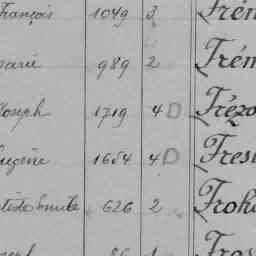 François 1049 3 Frém
Marie 989 2 Frém
Joseph 1719 4 D Frézo
Eugène 1654 4 D Fres
Emile 626 2 Froh
1 Fros